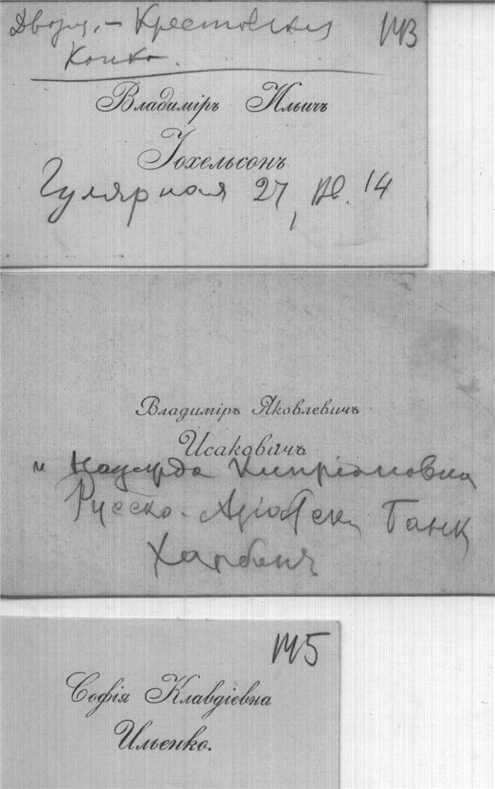 Дворц. - Крестовская
Конка.
143
Владиміръ Ильичъ
Іохельсонъ
Гулярная 27, кв. 14
Владиміръ Яковлевичъ
Исаковичъ
и Надежда Кипріановна
Русско-Азіатск. Банк
Харбинъ
145
Софія Клавдіевна
Ильенко.